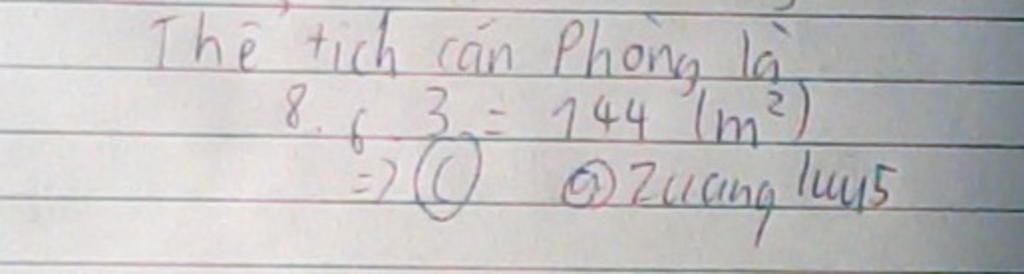 Thể tích căn Phòng là
8. 6 3 = 144 (m²)
=> C @Zuang luy5